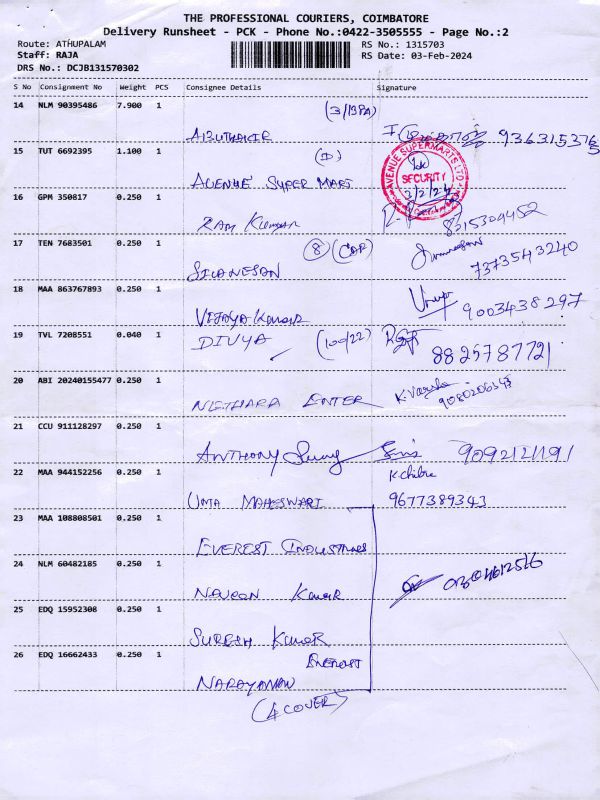 THE PROFESSIONAL COURIERS, COIMBATORE
Delivery Runsheet - PCK - Phone No.:0422-3505555 - Page No.:2
Route: ATHUPALAM RS No.: 1315703
Staff: RAJA RS Date: 03-Feb-2024
DRS No.: DCJB131570302
S No Consignment No Weight PCS Consignee Details Signature
14 NLM 90395486 7.900 1
ABUTHAKIR
15 TUT 6692395 1.100 1 (D)
AVENUE SUPER MART
AVENUE SUPERMARTS LTD
SECURITY
3/2/24
16 GPM 350817 0.250 1
RAM KUMAR 8215309452
17 TEN 7683501 0.250 1 (8) (CAR)
SIVANESAN 7373543240
18 MAA 863767893 0.250 1
VIJAYA KUMAR 9003438297
19 TVL 7208551 0.040 1
DIVYA (100/22) 8825787721
20 ABI 20240155477 0.250 1
NETHARA ENTER K. Varsha
21 CCU 911128297 0.250 1
ANTHONY 9092121191
22 MAA 944152256 0.250 1 K chitra
UMA MAHESWARI 9677389343
23 MAA 108808501 0.250 1
EVEREST INDUSTRIES
24 NLM 60482185 0.250 1
NAVEEN KUMAR
25 EDQ 15952308 0.250 1
SURESH KUMAR
26 EDQ 16662433 0.250 1 EVEREST
NARAYANAN
(4 COVER)